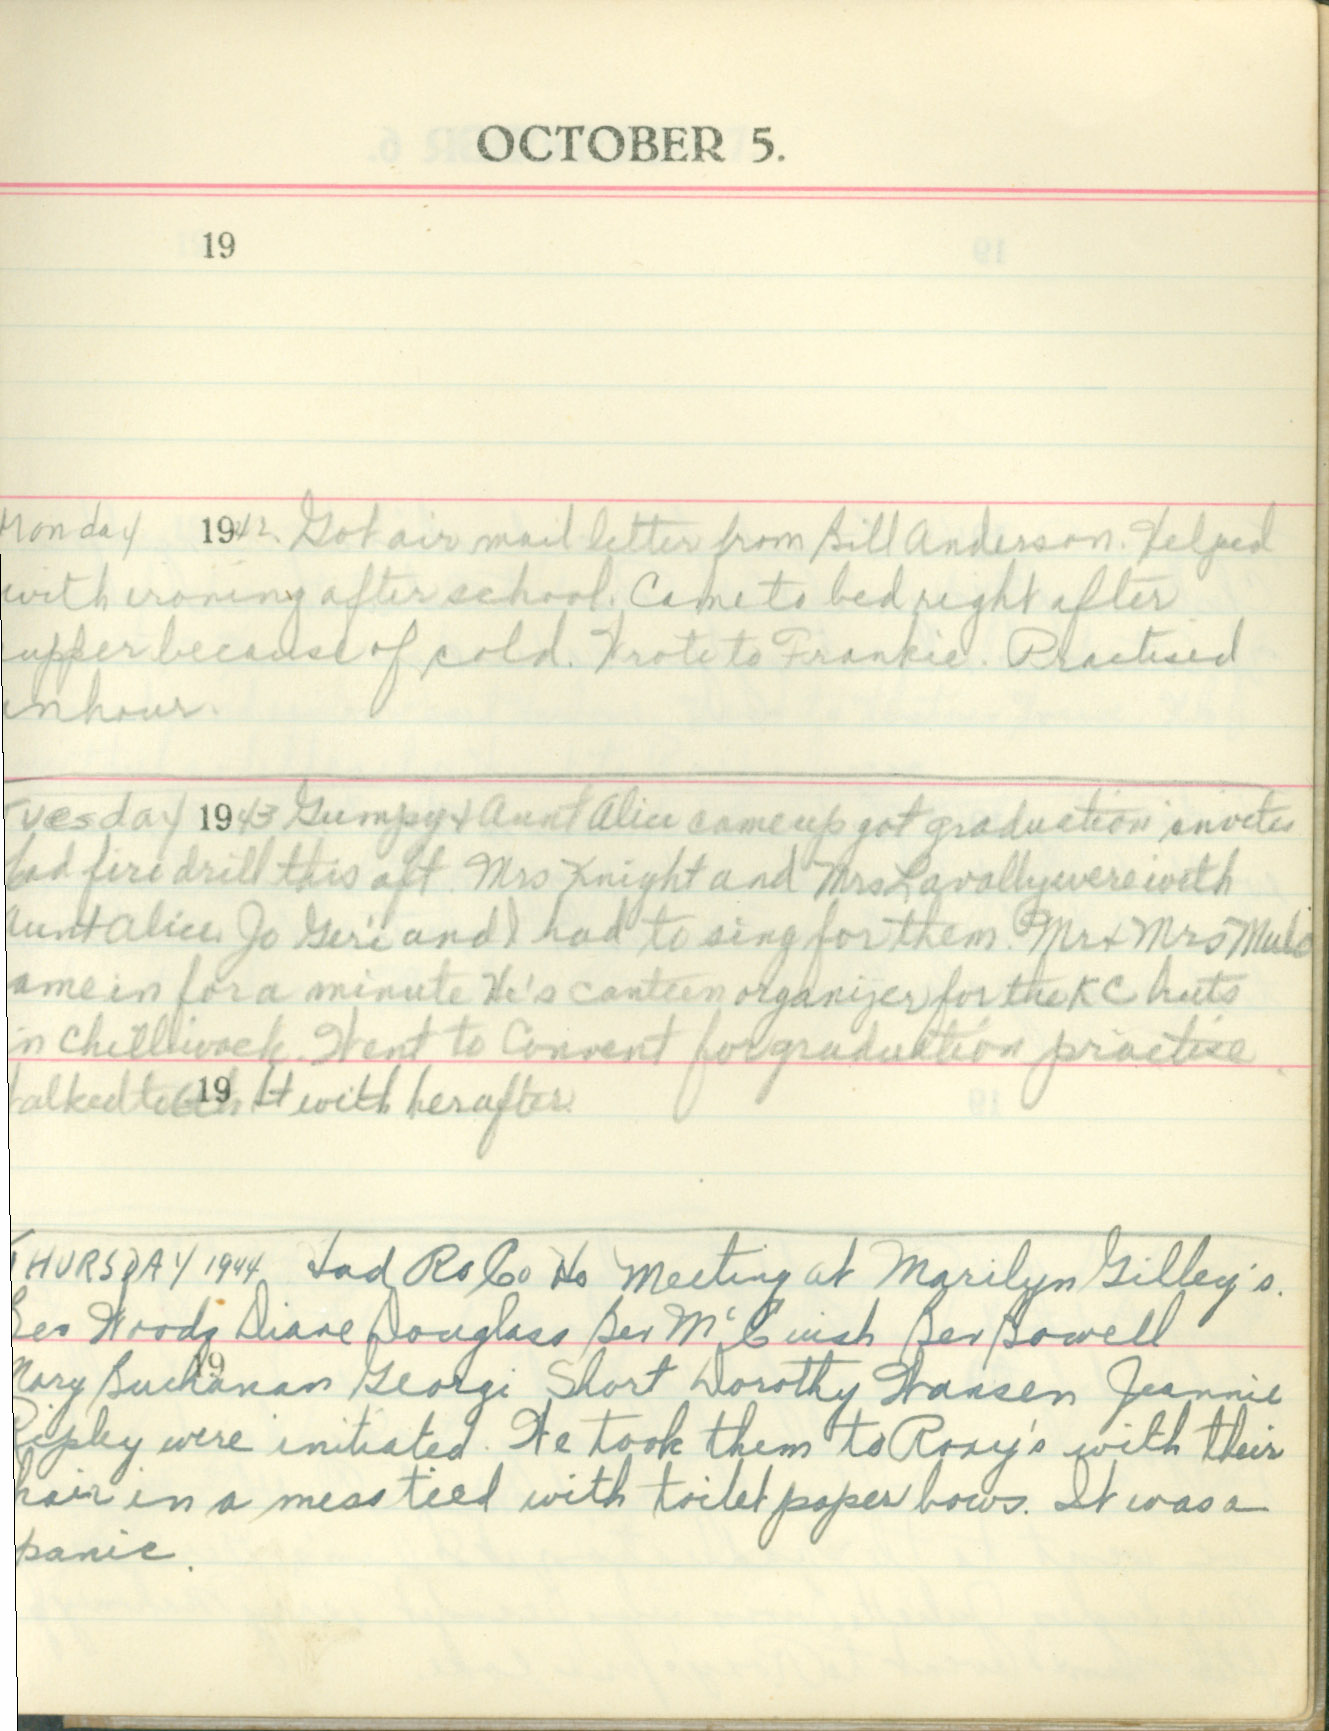 OCTOBER 5.
19
Monday 1942. Got air mail letter from Bill Anderson. Helped
with ironing after school. Came to bed right after
supper because of cold. Wrote to Frankie. Practised
an hour.
Tuesday 1943 Gumpy & Aunt Alice came up got graduation invites
had fire drill this aft. Mrs Knight and Mrs Lavally were with
Aunt Alice. Jo Geri and I had to sing for them. Mr & Mrs
came in for a minute He's canteen organizer for the KC huts
in Chilliwack. Went to Convent for graduation practise
19
talked to it with her after.
THURSDAY 1944 Had Ro Co Ho Meeting at Marilyn Gilley's.
Bev Woods Diane Douglass Bev McCuish Bev Bowell
19
Mary Buchanan Georgi Short Dorothy Hansen Jeannie
Ripley were initiated. We took them to Roxy's with their
hair in a mess tied with toilet paper bows. It was a
panic.